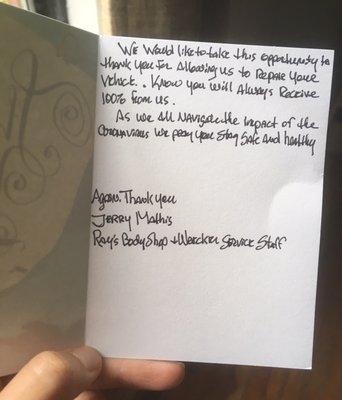 We Would like to take this opportunity to
thank you for Allowing us to Repair your
Vehicle.. Know you will Always Receive
100% from us.
As we All Navigate the impact of the
Coronavirus we pray you Stay Safe And healthy
Again, Thank you
Jerry Mathis
Ray's Body Shop + Wrecker Service Staff